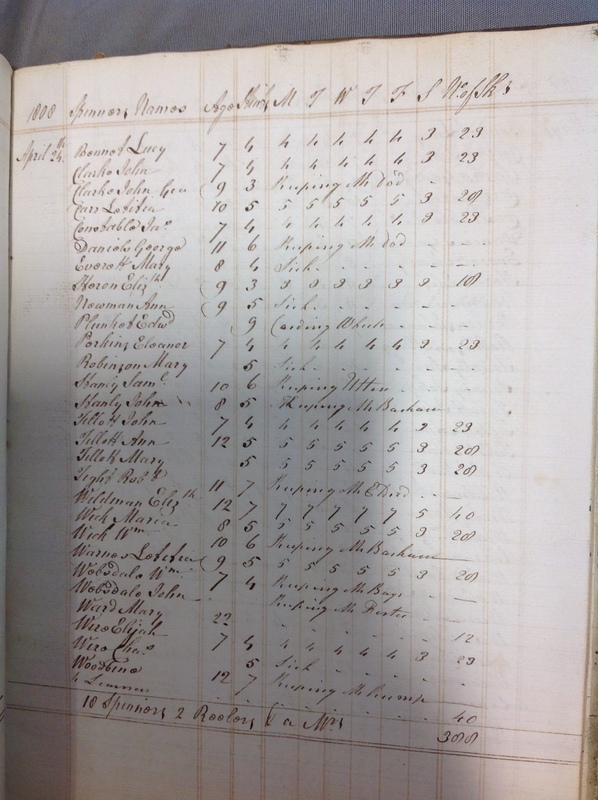 1808 Spinners Names Age Stint M T W T F S No of Sks
April 24th Bennet Lucy 7 4 4 4 4 4 4 3 23
Clarke John 7 4 4 4 4 4 4 3 23
Clarke John Geo 9 3 Keeping Mr Dod
Cars Letitia 10 5 5 5 5 5 5 3 28
Constable Jas 7 4 4 4 4 4 4 3 23
Daniels George 11 6 Keeping Mr Dod
Everett Mary 8 4 Sick
Heron Elizth 9 3 3 3 3 3 3 3 18
Newman Ann 9 5 Sick
Plunket Edwd 9 Carding Wheels
Perkins Eleanor 7 4 4 4 4 4 4 3 23
Robinson Mary 5 Sick
Stanly Saml 10 6 Keeping Utten
Stanly John 8 5 Keeping Mr Basham
Tillett John 7 4 4 4 4 4 4 3 23
Tillett Ann 12 5 5 5 5 5 5 3 28
Tillett Mary 5 5 5 5 5 5 3 28
Tight Robt 11 7 Keeping Mr
Wildman Elizth 12 7 7 7 7 7 7 5 40
Wick Maria 8 5 5 5 5 5 5 3 28
Wick Wm 10 6 Keeping Mr Basham
Warnes Letitia 9 5 5 5 5 5 5 3 28
Wobsdale Wm 7 4 Keeping Mr
Wobsdale John Keeping Mr
Ward Mary 22 12
Wero Elijah 7 4 4 4 4 4 4 3 23
Wero Chas 5 Sick
12 7 Keeping Mr
4 40
18 Spinners 2 Reelers 388